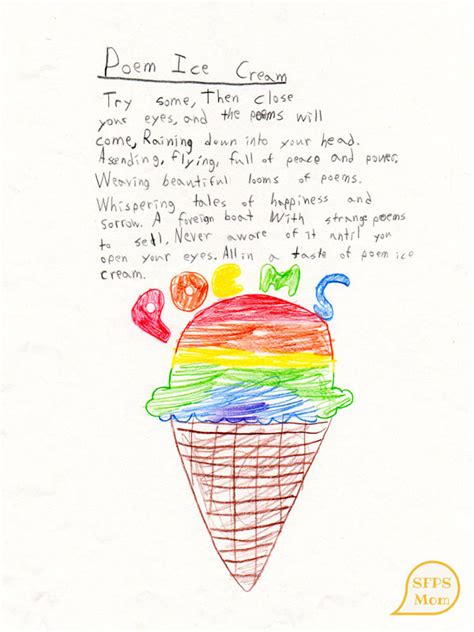 Poem Ice Cream
Try some, Then close
your eyes, and the poems will
come, Raining down into your head.
Asending, flying, full of peace and power,
Weaving beautiful looms of poems.
Whispering tales of happiness and
sorrow. A foreign boat With strange poems
to sell, Never aware of it until you
open your eyes. All in a taste of poem ice
cream.
POEMS
SFPS
Mom